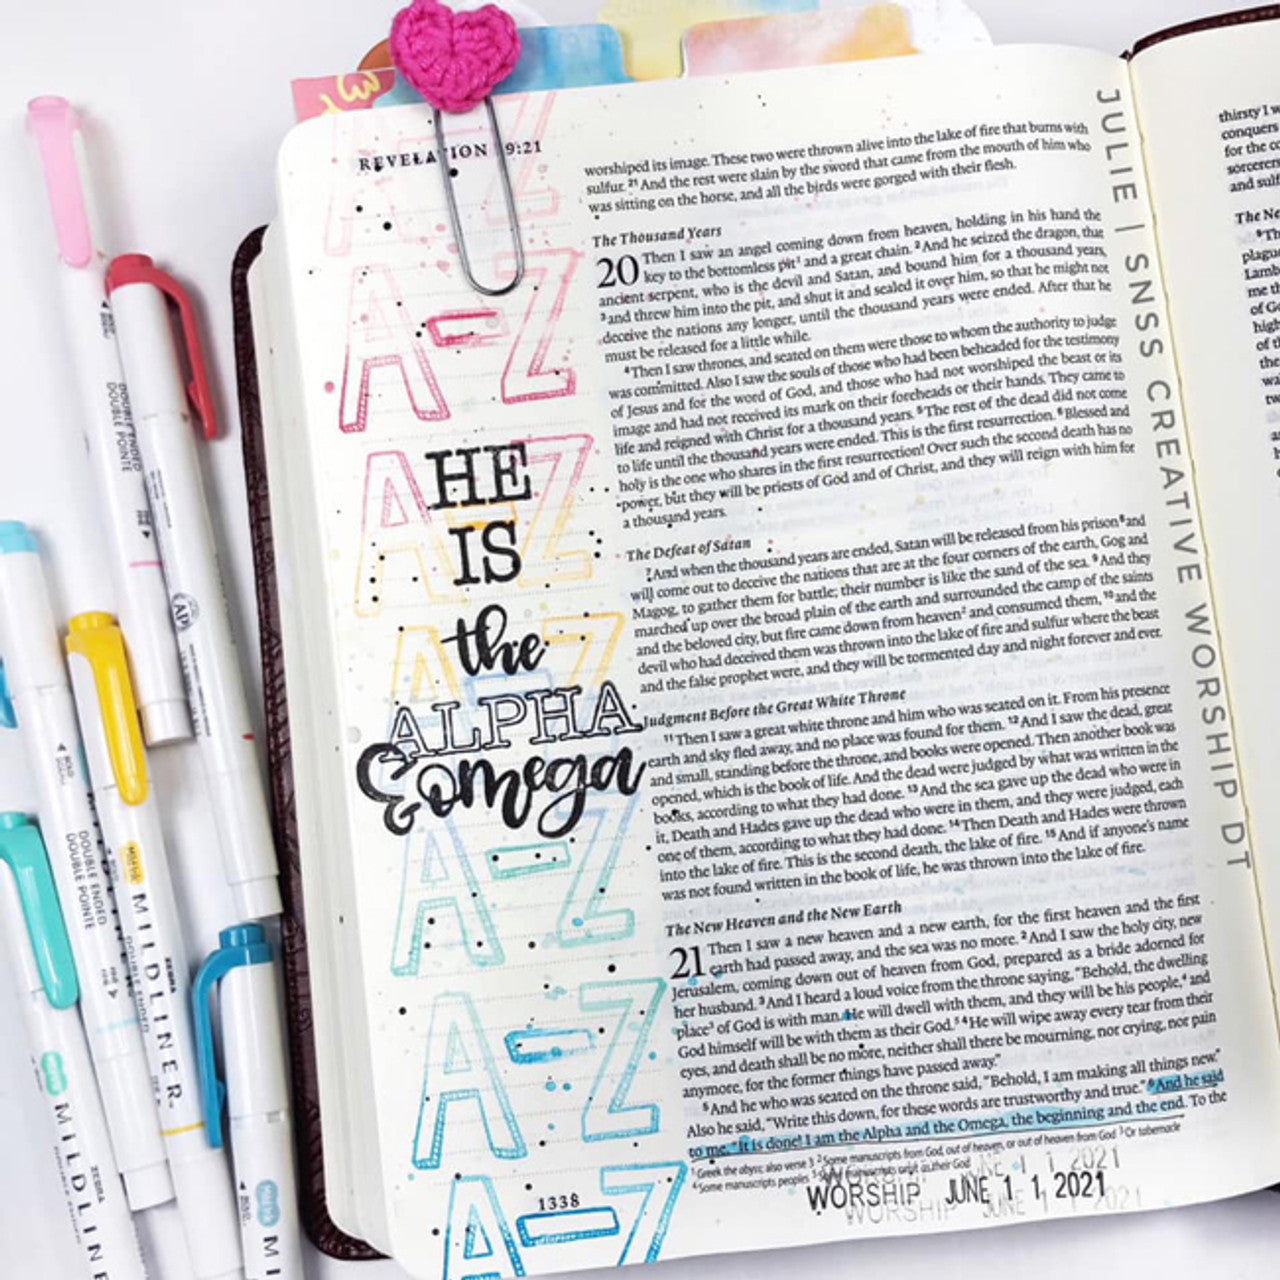 REVELATION 19:21
worshiped its image. These two were thrown alive into the lake of fire that burns with
sulfur. 21 And the rest were slain by the sword that came from the mouth of him who
was sitting on the horse, and all the birds were gorged with their flesh.
The Thousand Years
20 Then I saw an angel coming down from heaven, holding in his hand the
key to the bottomless pit¹ and a great chain. 2 And he seized the dragon, that
ancient serpent, who is the devil and Satan, and bound him for a thousand years,
3 and threw him into the pit, and shut it and sealed it over him, so that he might not
deceive the nations any longer, until the thousand years were ended. After that he
must be released for a little while.
4 Then I saw thrones, and seated on them were those to whom the authority to judge
was committed. Also I saw the souls of those who had been beheaded for the testimony
of Jesus and for the word of God, and those who had not worshiped the beast or its
image and had not received its mark on their foreheads or their hands. They came to
life and reigned with Christ for a thousand years. 5 The rest of the dead did not come
to life until the thousand years were ended. This is the first resurrection. 6 Blessed and
holy is the one who shares in the first resurrection! Over such the second death has no
power, but they will be priests of God and of Christ, and they will reign with him for
a thousand years.
The Defeat of Satan
7 And when the thousand years are ended, Satan will be released from his prison 8 and
will come out to deceive the nations that are at the four corners of the earth, Gog and
Magog, to gather them for battle; their number is like the sand of the sea. 9 And they
marched up over the broad plain of the earth and surrounded the camp of the saints
and the beloved city, but fire came down from heaven² and consumed them, 10 and the
devil who had deceived them was thrown into the lake of fire and sulfur where the beast
and the false prophet were, and they will be tormented day and night forever and ever.
Judgment Before the Great White Throne
11 Then I saw a great white throne and him who was seated on it. From his presence
earth and sky fled away, and no place was found for them. 12 And I saw the dead, great
and small, standing before the throne, and books were opened. Then another book was
opened, which is the book of life. And the dead were judged by what was written in the
books, according to what they had done. 13 And the sea gave up the dead who were in
it, Death and Hades gave up the dead who were in them, and they were judged, each
one of them, according to what they had done. 14 Then Death and Hades were thrown
into the lake of fire. This is the second death, the lake of fire. 15 And if anyone's name
was not found written in the book of life, he was thrown into the lake of fire.
The New Heaven and the New Earth
21 Then I saw a new heaven and a new earth, for the first heaven and the first
earth had passed away, and the sea was no more. 2 And I saw the holy city, new
Jerusalem, coming down out of heaven from God, prepared as a bride adorned for
her husband. 3 And I heard a loud voice from the throne saying, "Behold, the dwelling
place³ of God is with man. He will dwell with them, and they will be his people,⁴ and
God himself will be with them as their God.⁵ 4 He will wipe away every tear from their
eyes, and death shall be no more, neither shall there be mourning, nor crying, nor pain
anymore, for the former things have passed away."
5 And he who was seated on the throne said, "Behold, I am making all things new."
Also he said, "Write this down, for these words are trustworthy and true." 6 And he said
to me, "It is done! I am the Alpha and the Omega, the beginning and the end. To the
1 Greek the abyss; also verse 3 2 Some manuscripts from God, out of heaven, or out of heaven from God 3 Or tabernacle
4 Some manuscripts peoples
WORSHIP JUNE 1 1, 2021
1338
A-Z
A-Z
A-Z
HE
IS
the
ALPHA
& omega
A-Z
A-Z
A-Z
A-Z
JULIE | SNSS CREATIVE WORSHIP DT
thirsty I w
conquers
for the co
sorcerers
and sulf
The Ne
plague
Lamb
me th
of G
high
of th
DOUBLE ENDED
DOUBLE POINTE
DOUBLE ENDED
DOUBLE POINTE
ZEBRA
MILDLINER
DOUBLE ENDED
ZEBRA
MILDLINE
MI